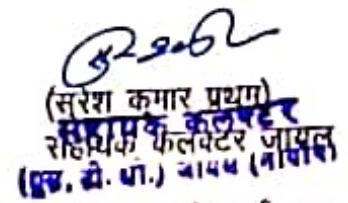 (सुरेश कुमार प्रथम)
सहायक कलक्टर
सहायक कलक्टर जायल
(एस. डी. एम.) जायल (नागौर)